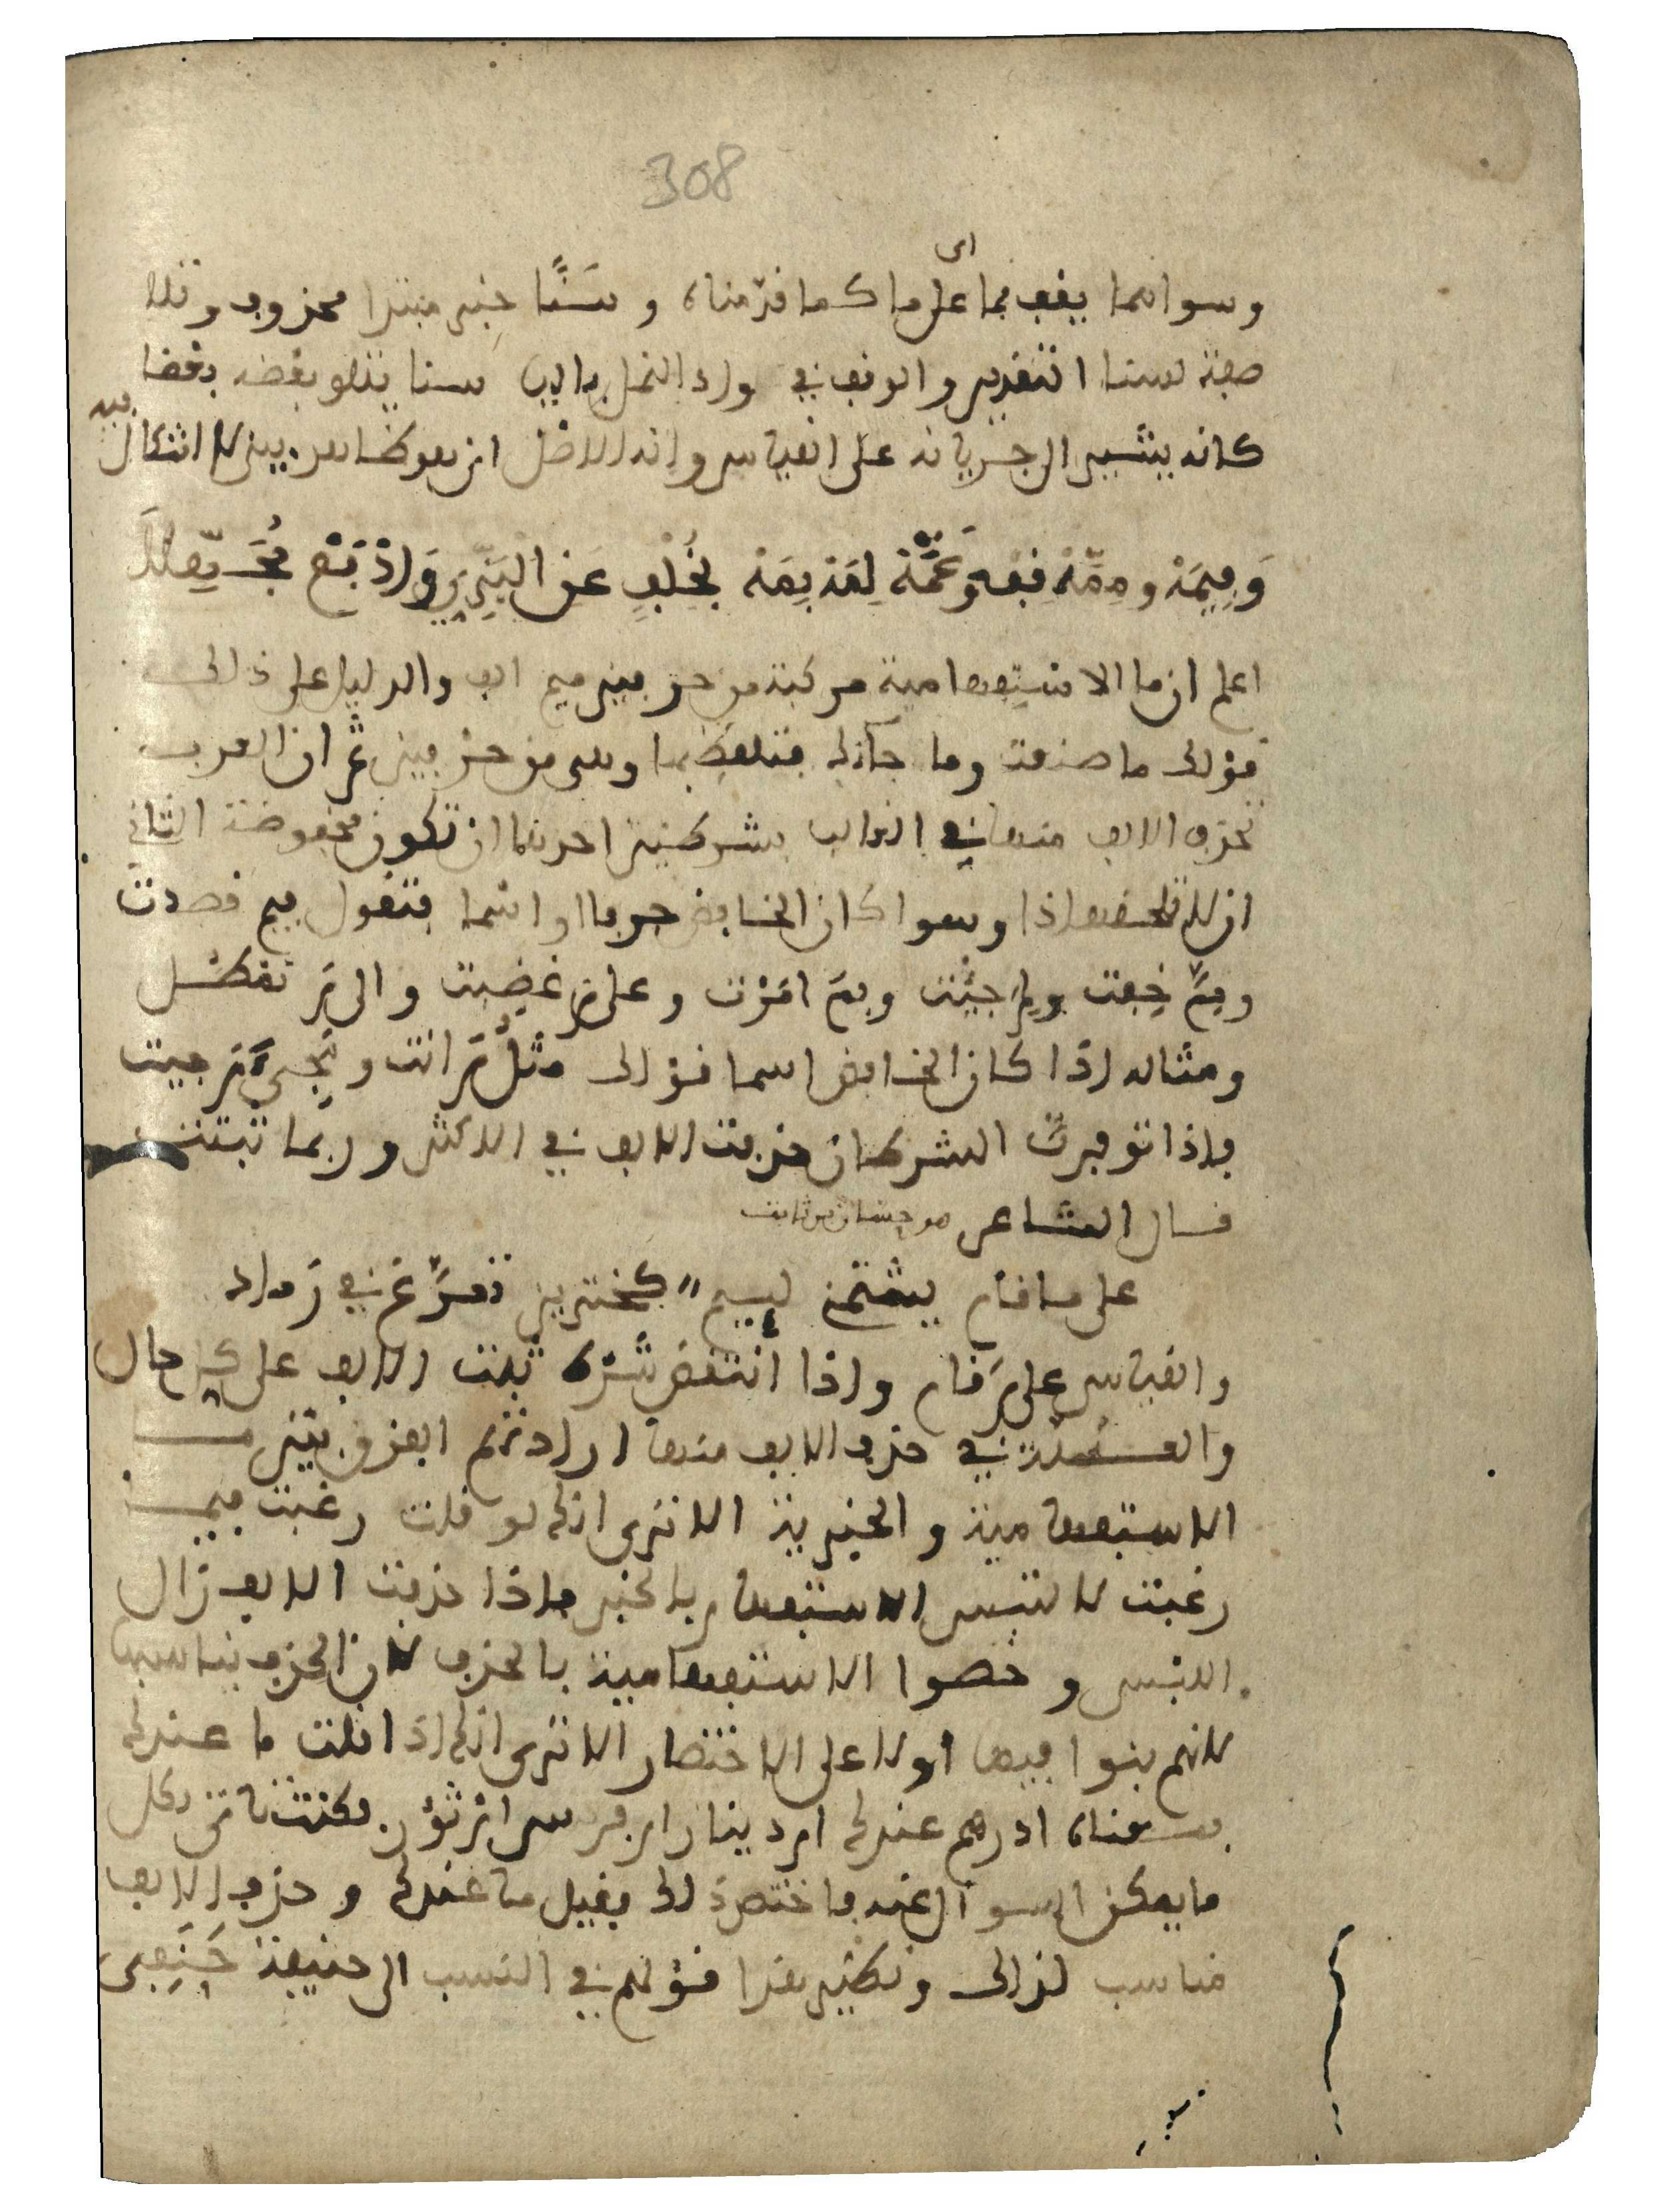 308
اى
وسواهما يقف بما على ما كما قدمناه وسَنًا خبر مبتدا محذوف وتلا
صفة لسنا التقدير والوقف في واد النمل باليا سنا يتلو بعضه بعضا
كانه يشير الى جريانه على القياس وانه الاصل اذ هو ظاهر بين لا اشكال
فيه
وَفِيمَهْ ومِمَّهْ قِفْ وَعَمَّهْ لِمَهْ بِمَهْ بِخُلْفٍ عَنِ الْبَزِّي وَادْفَعْ مُجَهِّلَا
اعلم ان ما الاستفهامية مركبة من حرفين ميم الف والدليل على ذلك
قولك ما صنعت وما جا بك فتلفظ بها وهى من حرفين ثم ان العرب
تحذف الالف منها في الغالب بشرطين احدهما ان تكون مخفوضة الثانى
ان لا تلحقها ذا وسوا كان الخافض حرفا او اسما فتقول فيم قصدت
ومِمَّ خِفت ولِمَ جِئْت وبِمَ امَرْت وعلى مَ غضبت والى مَ تفضل
ومثاله اذا كان الخافض اسما قولك مثلُ مَ انت ومَجِىءَ مَ جيت
فاذا توفرت الشرطان حذفت الالف في الاكثر وربما ثبتت
قال الشاعر هو حسان بن ثابت
على ما قام يشتمنى لييم كخنزير تمرَّغ في رَماد
والقياس على مَ قام واذا انتقض شرط ثبتت الالف على كل حال
والعلة في حذف الالف منها ارادتهم الفرق بين ما
الاستفهامية والخبرية الا ترى انك لو قلت رغبت فيما
رغبت لالتبس الاستفهام بالخبر فاذا حذفت الالف زال
اللبس وخصوا الاستفهامية بالحذف لان الحذف يناسبها
لانهم بنوا فيها اولا على الاختصار الا ترى انك اذا قلت ما عندك
فمعناه ادرهم عندك ام دينار ام فرس ام ثوب فكنت تاتى بكل
ما يمكن السوال عنه فاختصر ذلك بقيل ما عندك وحذف الالف
مناسب لذلك ونظير هذا قولهم في النسب الى حنيفة حَنَفِى